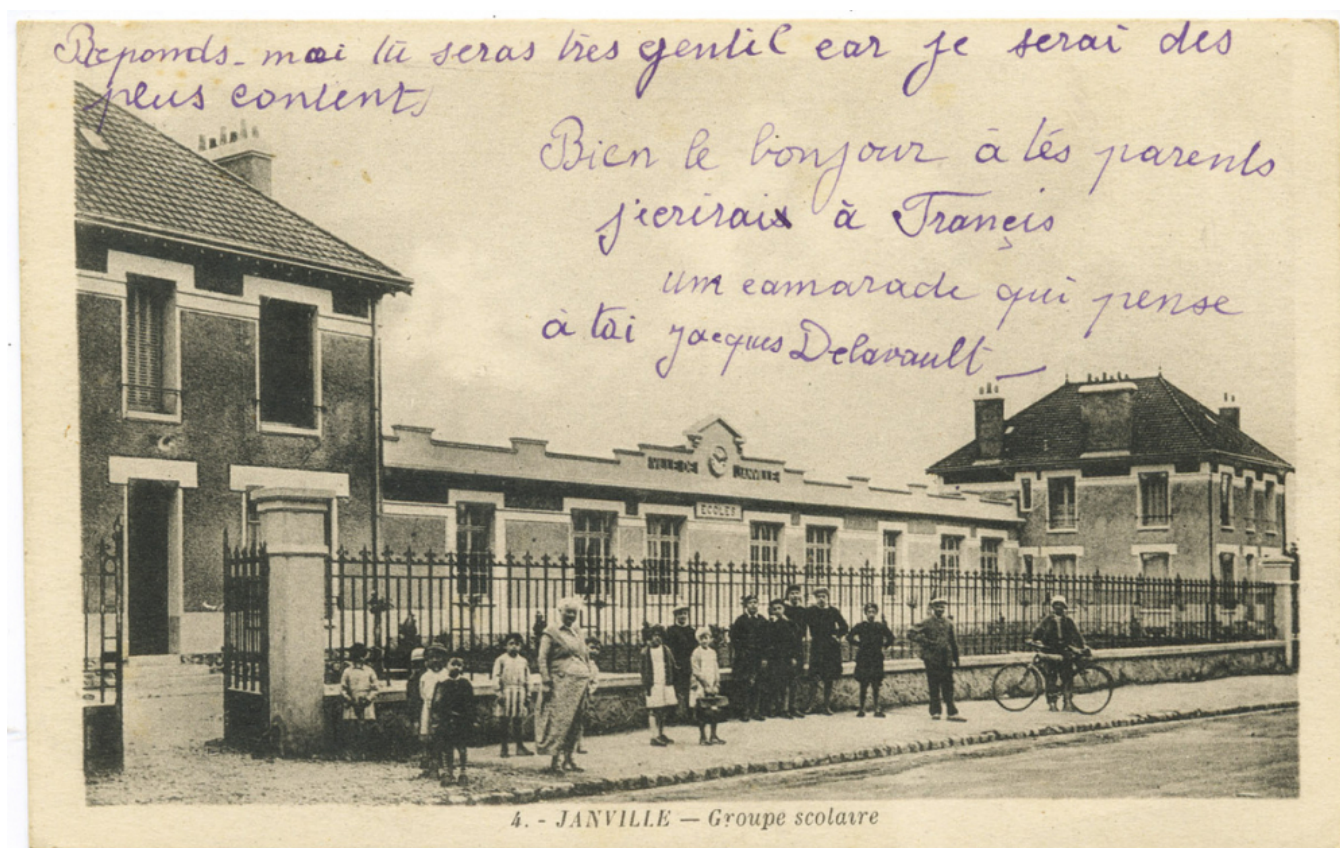 Reponds-moi tu seras très gentil car je serai des
plus content
Bien le bonjour à tés parents
j'ecrirais à Françis
um camarade qui pense
à toi Jacques Delavault
VILLE DE JANVILLE
ECOLES
4. - JANVILLE — Groupe scolaire